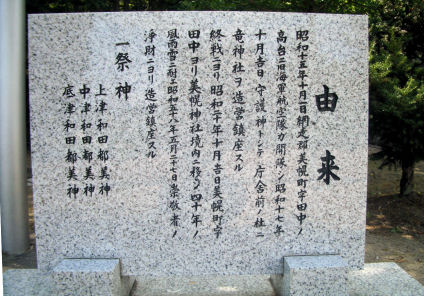 由来
昭和十五年十月一日網走郡美幌町字田中ノ
高台ニ旧海軍航空隊カ開隊シ昭和十七年
十月吉日守護神トシテ庁舎前ノ杜ニ
竜神社ヲ造営鎮座スル
終戦ニヨリ昭和二十年十月吉日美幌町字
田中ヨリ美幌神社境内ニ移シ四十年ノ
風雨雪ニ耐エ昭和五十八年五月二十七日崇敬者ノ
浄財ニヨリ造営鎮座スル
一祭神
上津和田都美神
中津和田都美神
底津和田都美神